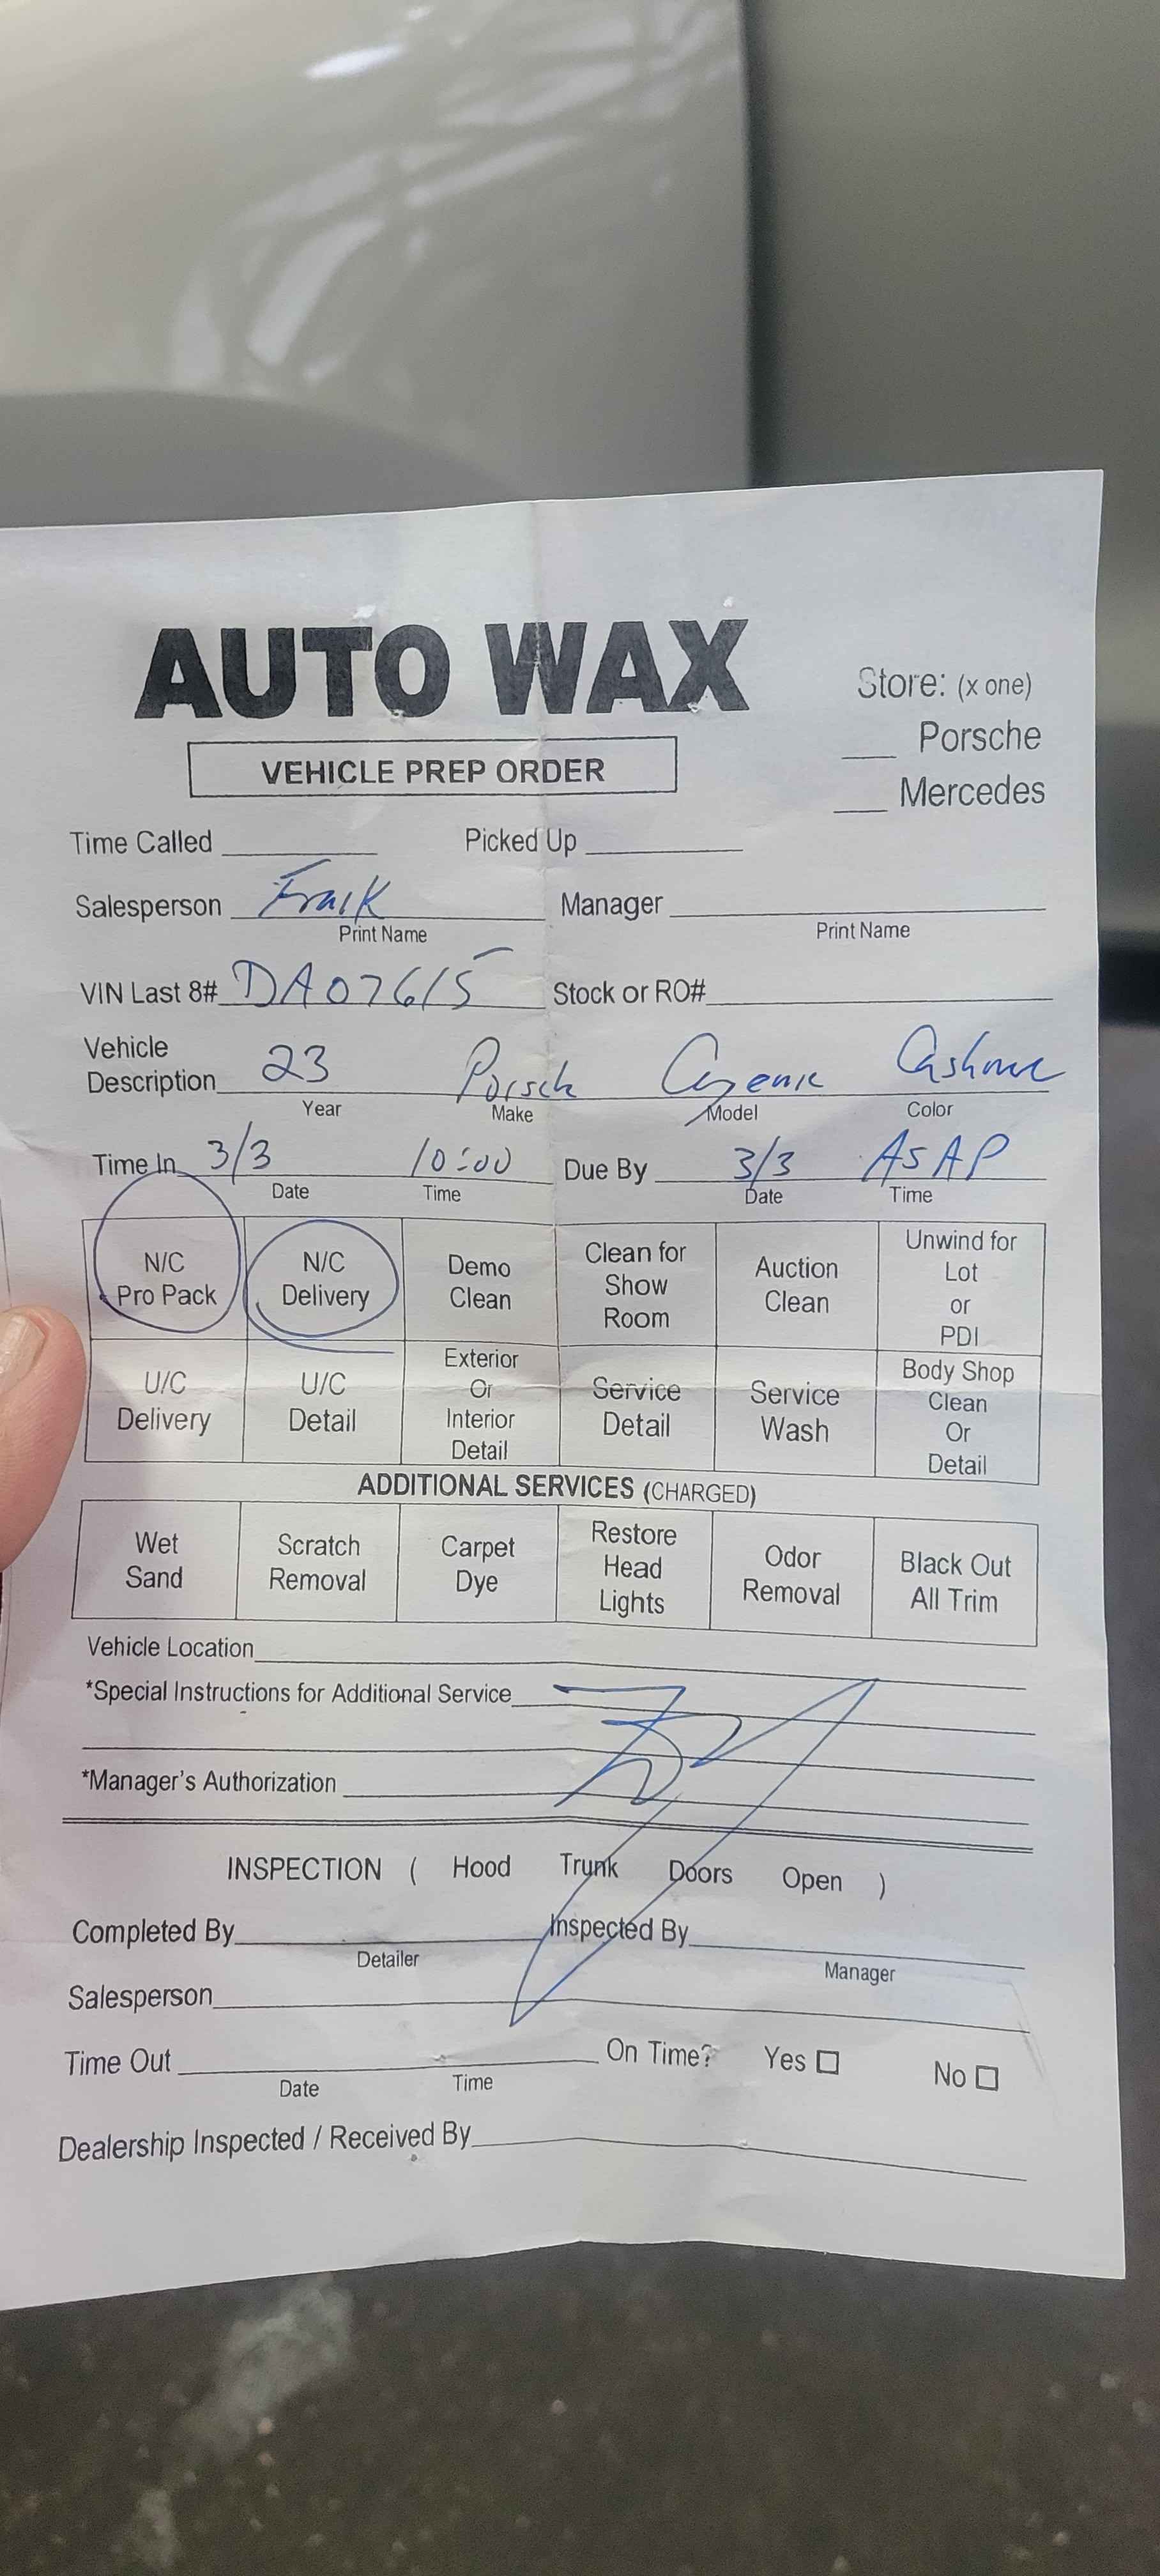 AUTO WAX
Store: (x one)
___ Porsche
VEHICLE PREP ORDER
___ Mercedes
Time Called ______ Picked Up ______
Salesperson Frank Manager ______
Print Name Print Name
VIN Last 8# DA07615 Stock or RO# ______
Vehicle
Description 23 Porsch Cayenne Cashmere
Year Make Model Color
Time In 3/3 10:00 Due By 3/3 ASAP
Date Time Date Time
N/C Pro Pack
N/C Delivery
Demo Clean
Clean for Show Room
Auction Clean
Unwind for Lot or PDI
U/C Delivery
U/C Detail
Exterior Or Interior Detail
Service Detail
Service Wash
Body Shop Clean Or Detail
ADDITIONAL SERVICES (CHARGED)
Wet Sand
Scratch Removal
Carpet Dye
Restore Head Lights
Odor Removal
Black Out All Trim
Vehicle Location
*Special Instructions for Additional Service
*Manager's Authorization
INSPECTION ( Hood Trunk Doors Open )
Completed By ______ Inspected By ______
Detailer Manager
Salesperson
Time Out ______ On Time? Yes □ No □
Date Time
Dealership Inspected / Received By